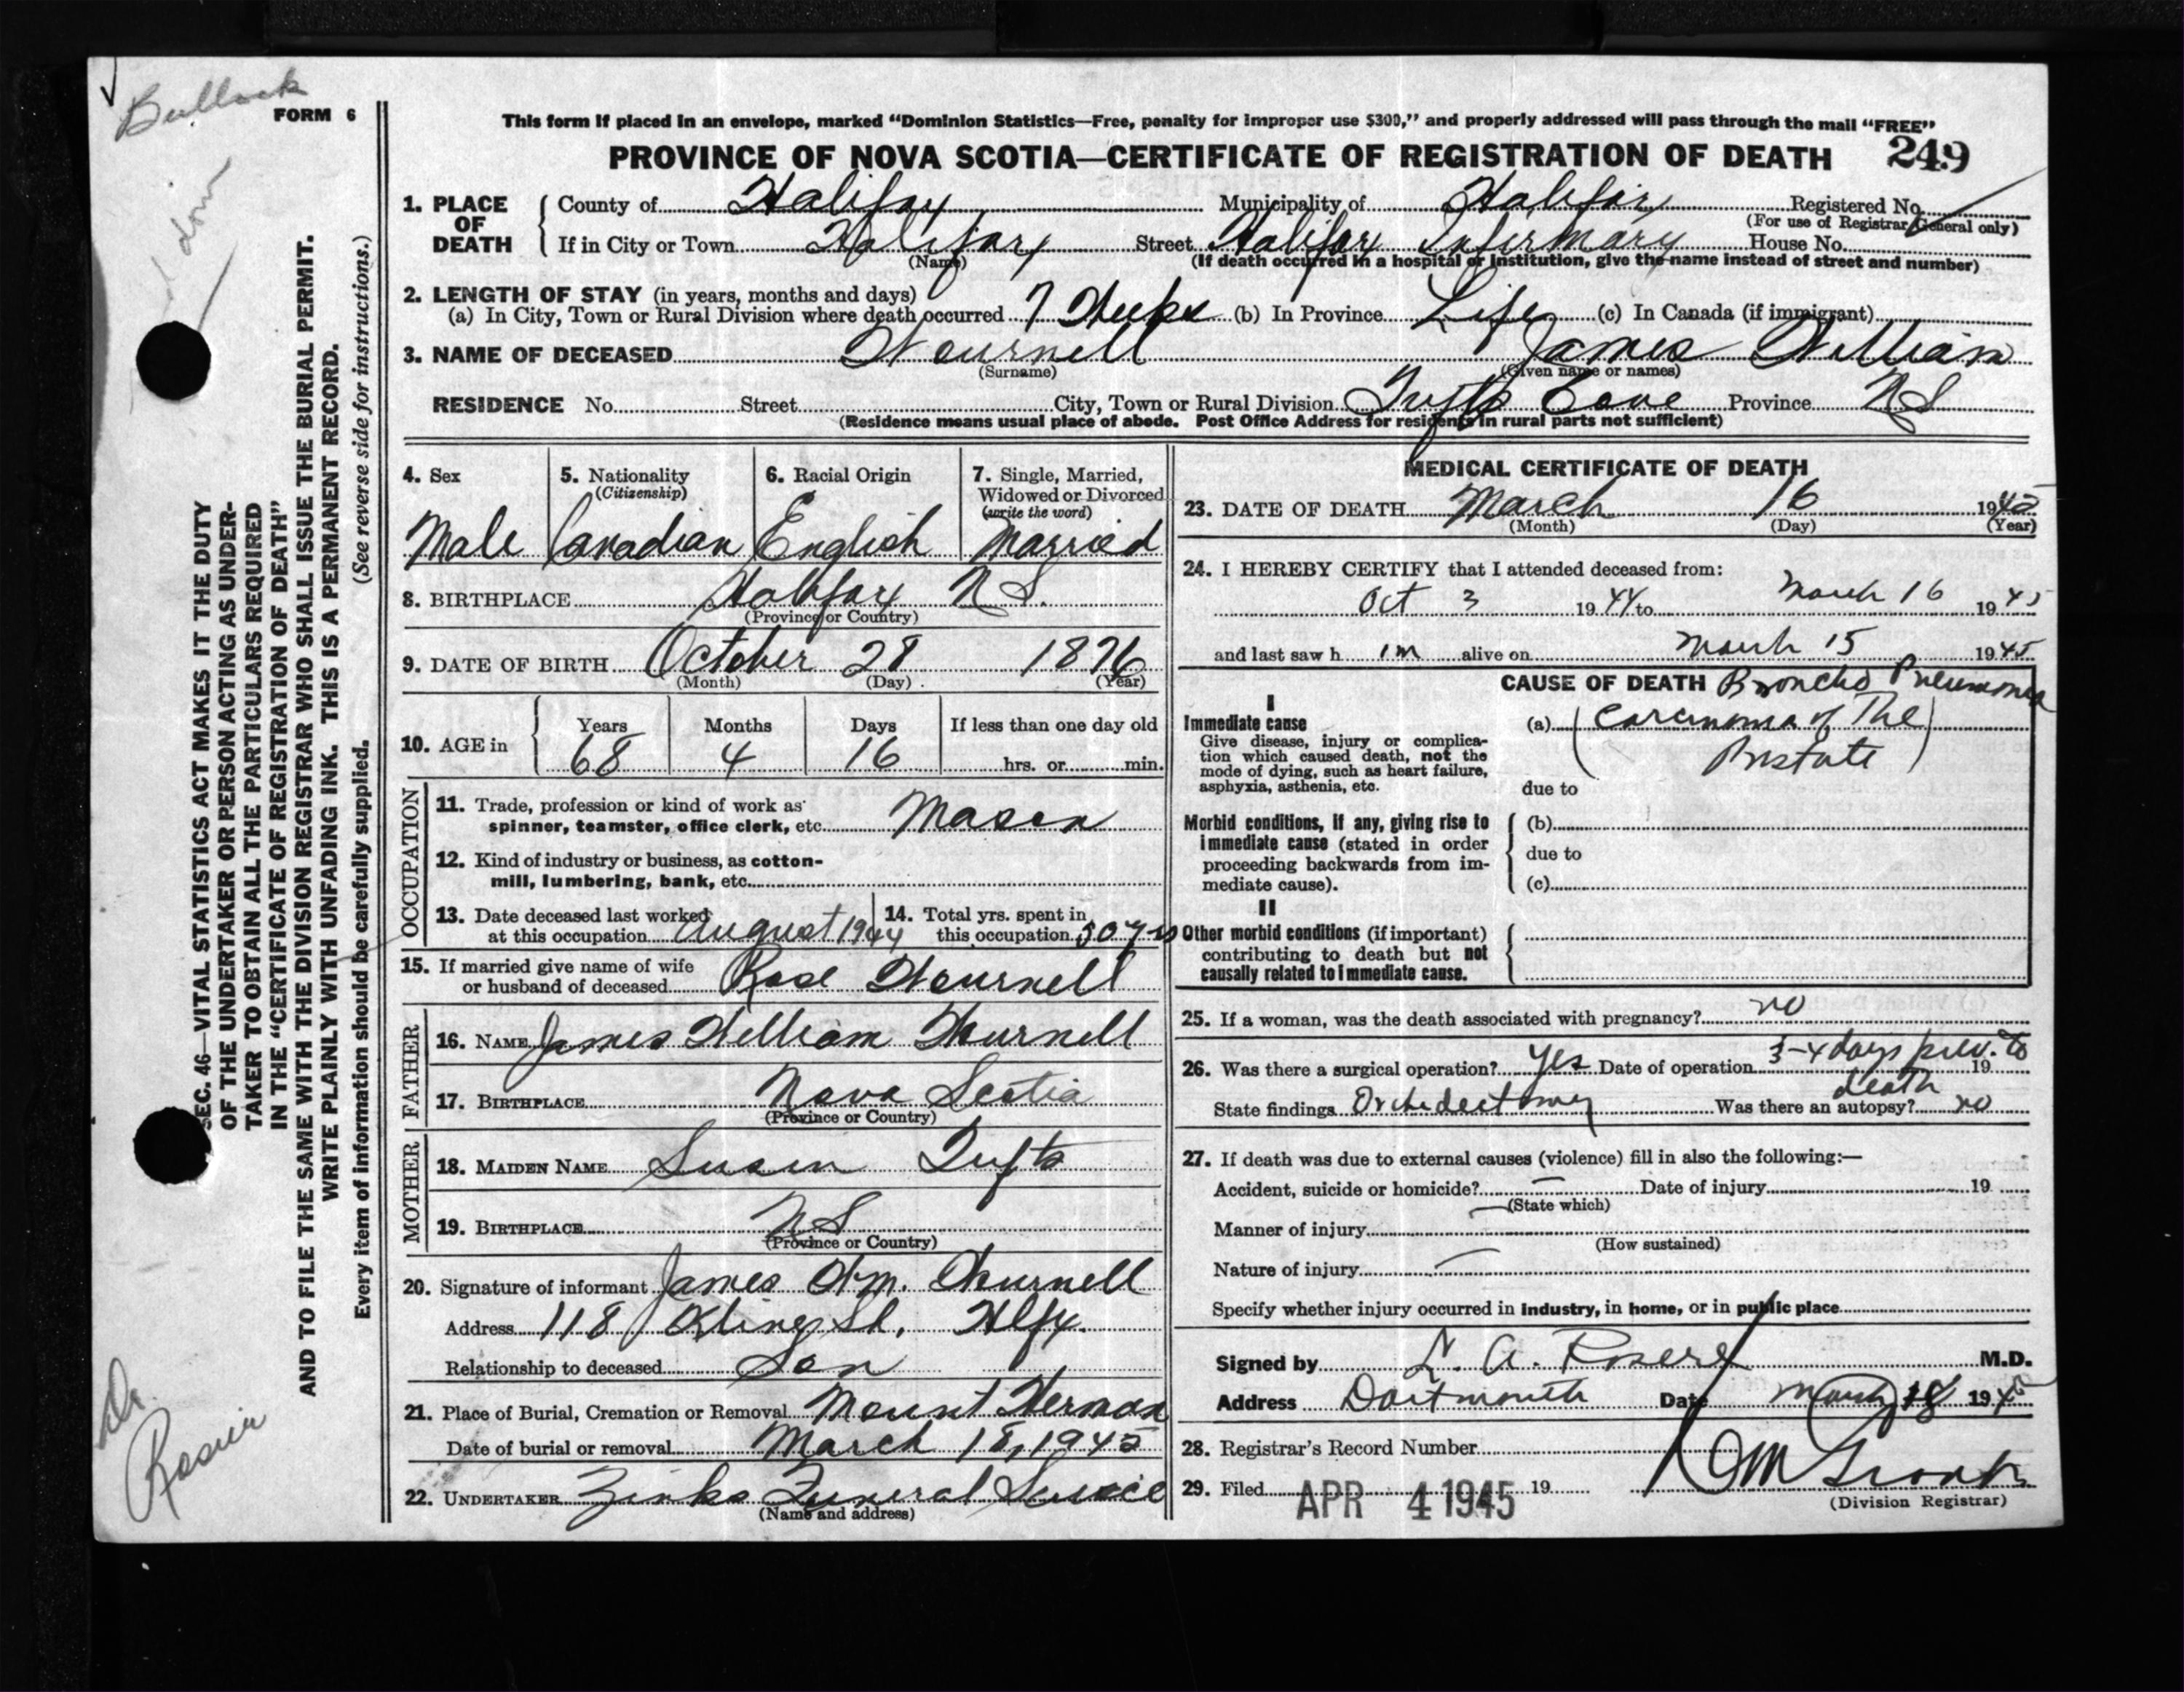 Bullock
FORM 6
This form if placed in an envelope, marked “Dominion Statistics—Free, penalty for improper use $300,” and properly addressed will pass through the mail “FREE”
PROVINCE OF NOVA SCOTIA—CERTIFICATE OF REGISTRATION OF DEATH 249
1. PLACE OF DEATH
County of Halifax Municipality of Halifax Registered No.
(For use of Registrar General only)
If in City or Town Halifax Street Halifax Infirmary House No.
(Name) (If death occurred in a hospital or institution, give the name instead of street and number)
2. LENGTH OF STAY (in years, months and days)
(a) In City, Town or Rural Division where death occurred 7 Weeks (b) In Province Life (c) In Canada (if immigrant)
3. NAME OF DECEASED Wournell James William
(Surname) (Given name or names)
RESIDENCE No. Street City, Town or Rural Division Tufts Cove Province NS
(Residence means usual place of abode. Post Office Address for residents in rural parts not sufficient)
4. Sex 5. Nationality 6. Racial Origin 7. Single, Married,
(Citizenship) Widowed or Divorced
(write the word)
Male Canadian English Married
8. BIRTHPLACE Halifax N S.
(Province or Country)
9. DATE OF BIRTH October 28 1876
(Month) (Day) (Year)
10. AGE in Years Months Days If less than one day old
68 4 16 hrs. or min.
OCCUPATION
11. Trade, profession or kind of work as
spinner, teamster, office clerk, etc. Mason
12. Kind of industry or business, as cotton-
mill, lumbering, bank, etc.
13. Date deceased last worked
at this occupation August 1944
14. Total yrs. spent in
this occupation 50 yrs
15. If married give name of wife
or husband of deceased Rose Wournell
FATHER
16. NAME James William Wournell
17. BIRTHPLACE Nova Scotia
(Province or Country)
MOTHER
18. MAIDEN NAME Susan Tufts
19. BIRTHPLACE N S
(Province or Country)
20. Signature of informant James Wm. Wournell
Address 118 Kline St. Hlfx.
Relationship to deceased Son
21. Place of Burial, Cremation or Removal Mount Hermon
Date of burial or removal March 18, 1945
22. UNDERTAKER Zinks Funeral Service
(Name and address)
MEDICAL CERTIFICATE OF DEATH
23. DATE OF DEATH March 16 1945
(Month) (Day) (Year)
24. I HEREBY CERTIFY that I attended deceased from:
Oct 3 1944 to March 16 1945
and last saw h im alive on March 15 1945
CAUSE OF DEATH Broncho Pneumonia
I
Immediate cause
Give disease, injury or complica-
tion which caused death, not the
mode of dying, such as heart failure,
asphyxia, asthenia, etc.
(a) (Carcinoma of The
Prostate)
due to
Morbid conditions, if any, giving rise to
immediate cause (stated in order
proceeding backwards from im-
mediate cause).
(b)
due to
(c)
II
Other morbid conditions (if important)
contributing to death but not
causally related to immediate cause.
25. If a woman, was the death associated with pregnancy? no
26. Was there a surgical operation? Yes Date of operation 3-4 days prev. to death 19
State findings Orchidectomy Was there an autopsy? no
27. If death was due to external causes (violence) fill in also the following:—
Accident, suicide or homicide? — Date of injury 19
(State which)
Manner of injury —
(How sustained)
Nature of injury —
Specify whether injury occurred in industry, in home, or in public place
Signed by L. A. Rosere M.D.
Address Dartmouth Date March 18 1945
28. Registrar's Record Number
29. Filed APR 4 1945 19
(Division Registrar)
SEC. 46—VITAL STATISTICS ACT MAKES IT THE DUTY
OF THE UNDERTAKER OR PERSON ACTING AS UNDER-
TAKER TO OBTAIN ALL THE PARTICULARS REQUIRED
IN THE “CERTIFICATE OF REGISTRATION OF DEATH”
AND TO FILE THE SAME WITH THE DIVISION REGISTRAR WHO SHALL ISSUE THE BURIAL PERMIT.
WRITE PLAINLY WITH UNFADING INK. THIS IS A PERMANENT RECORD.
Every item of information should be carefully supplied. (See reverse side for instructions.)
Dr.
Rosier